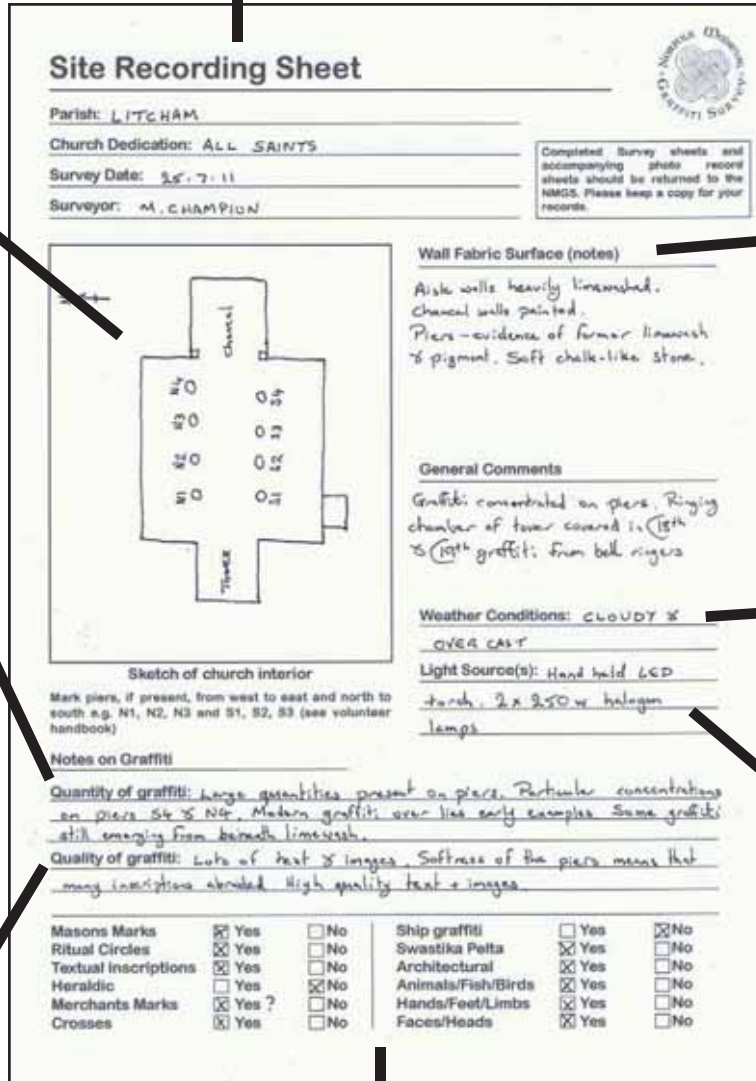 Site Recording Sheet
NORFOLK MEDIEVAL GRAFFITI SURVEY
Parish: LITCHAM
Church Dedication: ALL SAINTS
Survey Date: 25.7.11
Surveyor: M. CHAMPION
Completed Survey sheets and
accompanying photo record
sheets should be returned to the
NMGS. Please keep a copy for your
records.
Chancel
N4
N3
N2
N1
S4
S3
S2
S1
TOWER
Sketch of church interior
Mark piers, if present, from west to east and north to
south e.g. N1, N2, N3 and S1, S2, S3 (see volunteer
handbook)
Wall Fabric Surface (notes)
Aisle walls heavily limewashed.
Chancel walls painted.
Piers - evidence of former limewash
& pigment. Soft chalk-like stone.
General Comments
Graffiti concentrated on piers. Ringing
chamber of tower covered in C18th
& C19th graffiti from bell ringers
Weather Conditions: CLOUDY &
OVER CAST
Light Source(s): Hand held LED
torch. 2 x 250 w halogen
lamps
Notes on Graffiti
Quantity of graffiti: Large quantities present on piers. Particular concentrations
on piers S4 & N4. Modern graffiti over lies early examples Some graffiti
still emerging from beneath limewash.
Quality of graffiti: Lots of text & images. Softness of the piers means that
many inscriptions abraded High quality text + images
Masons Marks ☒ Yes ☐ No
Ritual Circles ☒ Yes ☐ No
Textual inscriptions ☒ Yes ☐ No
Heraldic ☐ Yes ☒ No
Merchants Marks ☒ Yes ? ☐ No
Crosses ☒ Yes ☐ No
Ship graffiti ☐ Yes ☒ No
Swastika Pelta ☒ Yes ☐ No
Architectural ☒ Yes ☐ No
Animals/Fish/Birds ☒ Yes ☐ No
Hands/Feet/Limbs ☒ Yes ☐ No
Faces/Heads ☒ Yes ☐ No